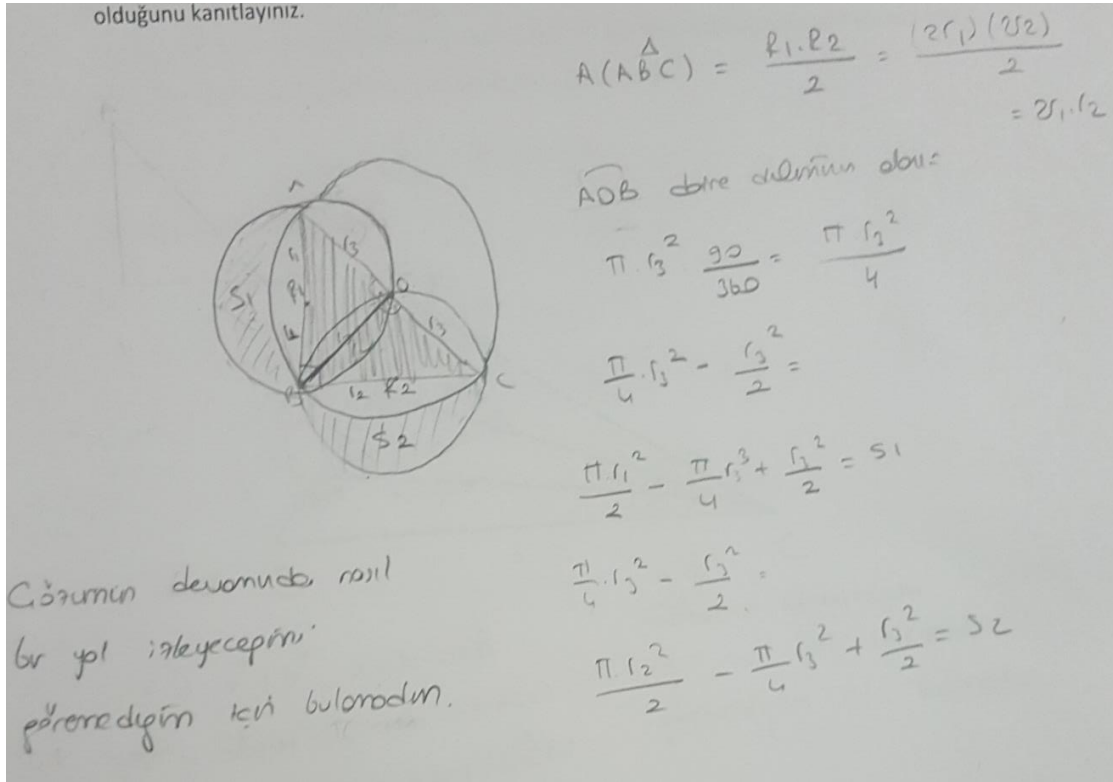 olduğunu kanıtlayınız.
A(ABC) = R1.R2 / 2 = (2r1)(2r2) / 2
= 2r1.r2
AOB daire diliminin alanı=
π.r3² 90/360 = π r3² / 4
π/4 .r3² - r3²/2 =
π.r1²/2 - π/4 r3³ + r3²/2 = S1
π/4 .r3² - r3²/2 =
π.r2²/2 - π/4 r3² + r3²/2 = S2
A
r1 r3
R1 O
S1
r1 r3
B r2 R2 C
S2
Çözümün devamında nasıl
bir yol izleyeceğimi
göremediğim için bulamadım.